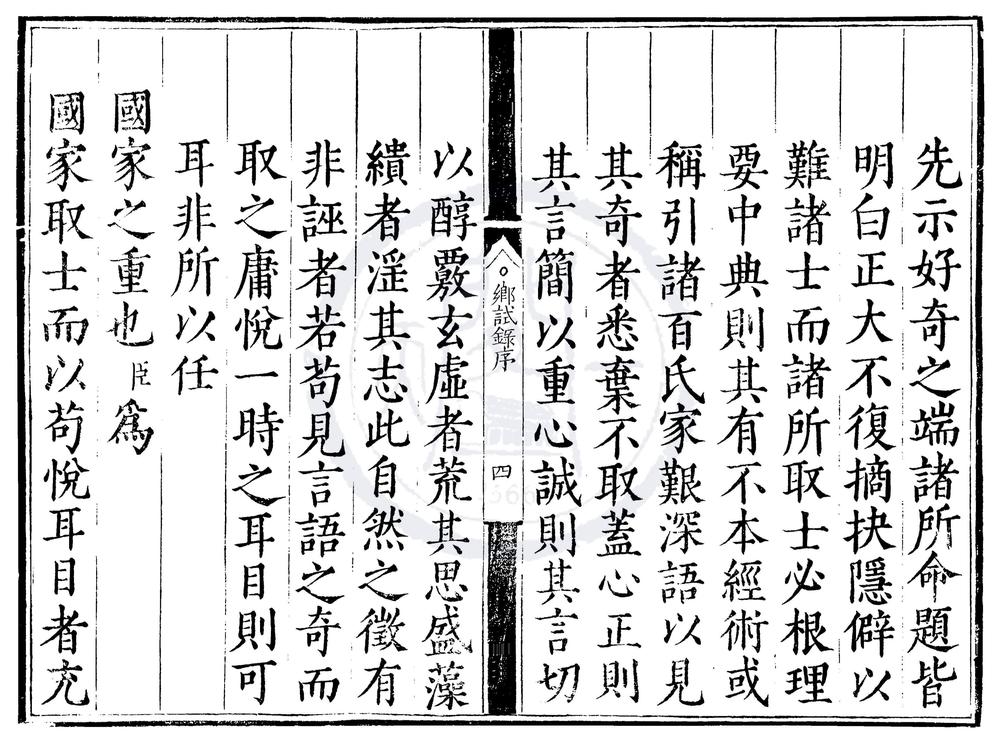 先示好奇之端諸所命題皆
明白正大不復摘抉隱僻以
難諸士而諸所取士必根理
要中典則其有不本經術或
稱引諸百氏家艱深語以見
其奇者悉棄不取蓋心正則
其言簡以重心誠則其言切
鄉試錄序
四
以醇覈玄虛者荒其思盛藻
繢者淫其志此自然之徵有
非誣者若苟見言語之奇而
取之庸悅一時之耳目則可
耳非所以任
國家之重也臣爲
國家取士而以苟悅耳目者充